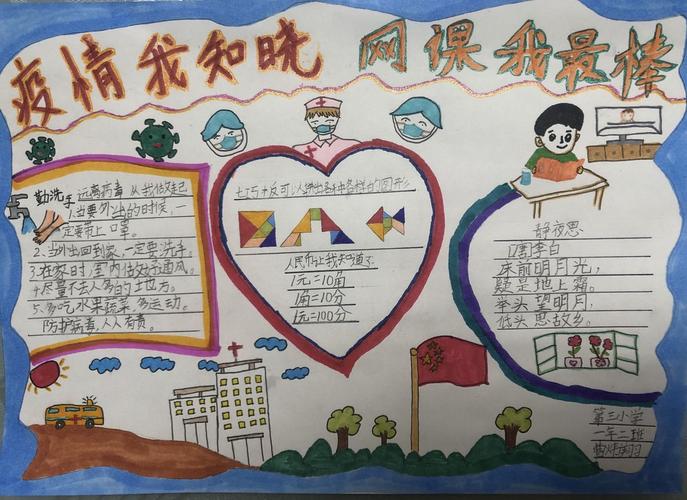 疫情我知晓 网课我最棒
勤洗手 远离病毒 从我做起
1.当要外出的时候，一
定要带上口罩。
2、当外出回到家，一定要洗手。
3.在家时，室内保好通风。
4.尽量不去人多的地方。
5、多吃水果蔬菜，多运动。
防护病毒，人人有责。
七巧板可以拼出各种各样的图形
人民币让我知道了
1元=10角
1角=10分
1元=100分
静夜思
[唐]李白
床前明月光，
疑是地上霜。
举头望明月，
低头思故乡。
第三小学
一年二班